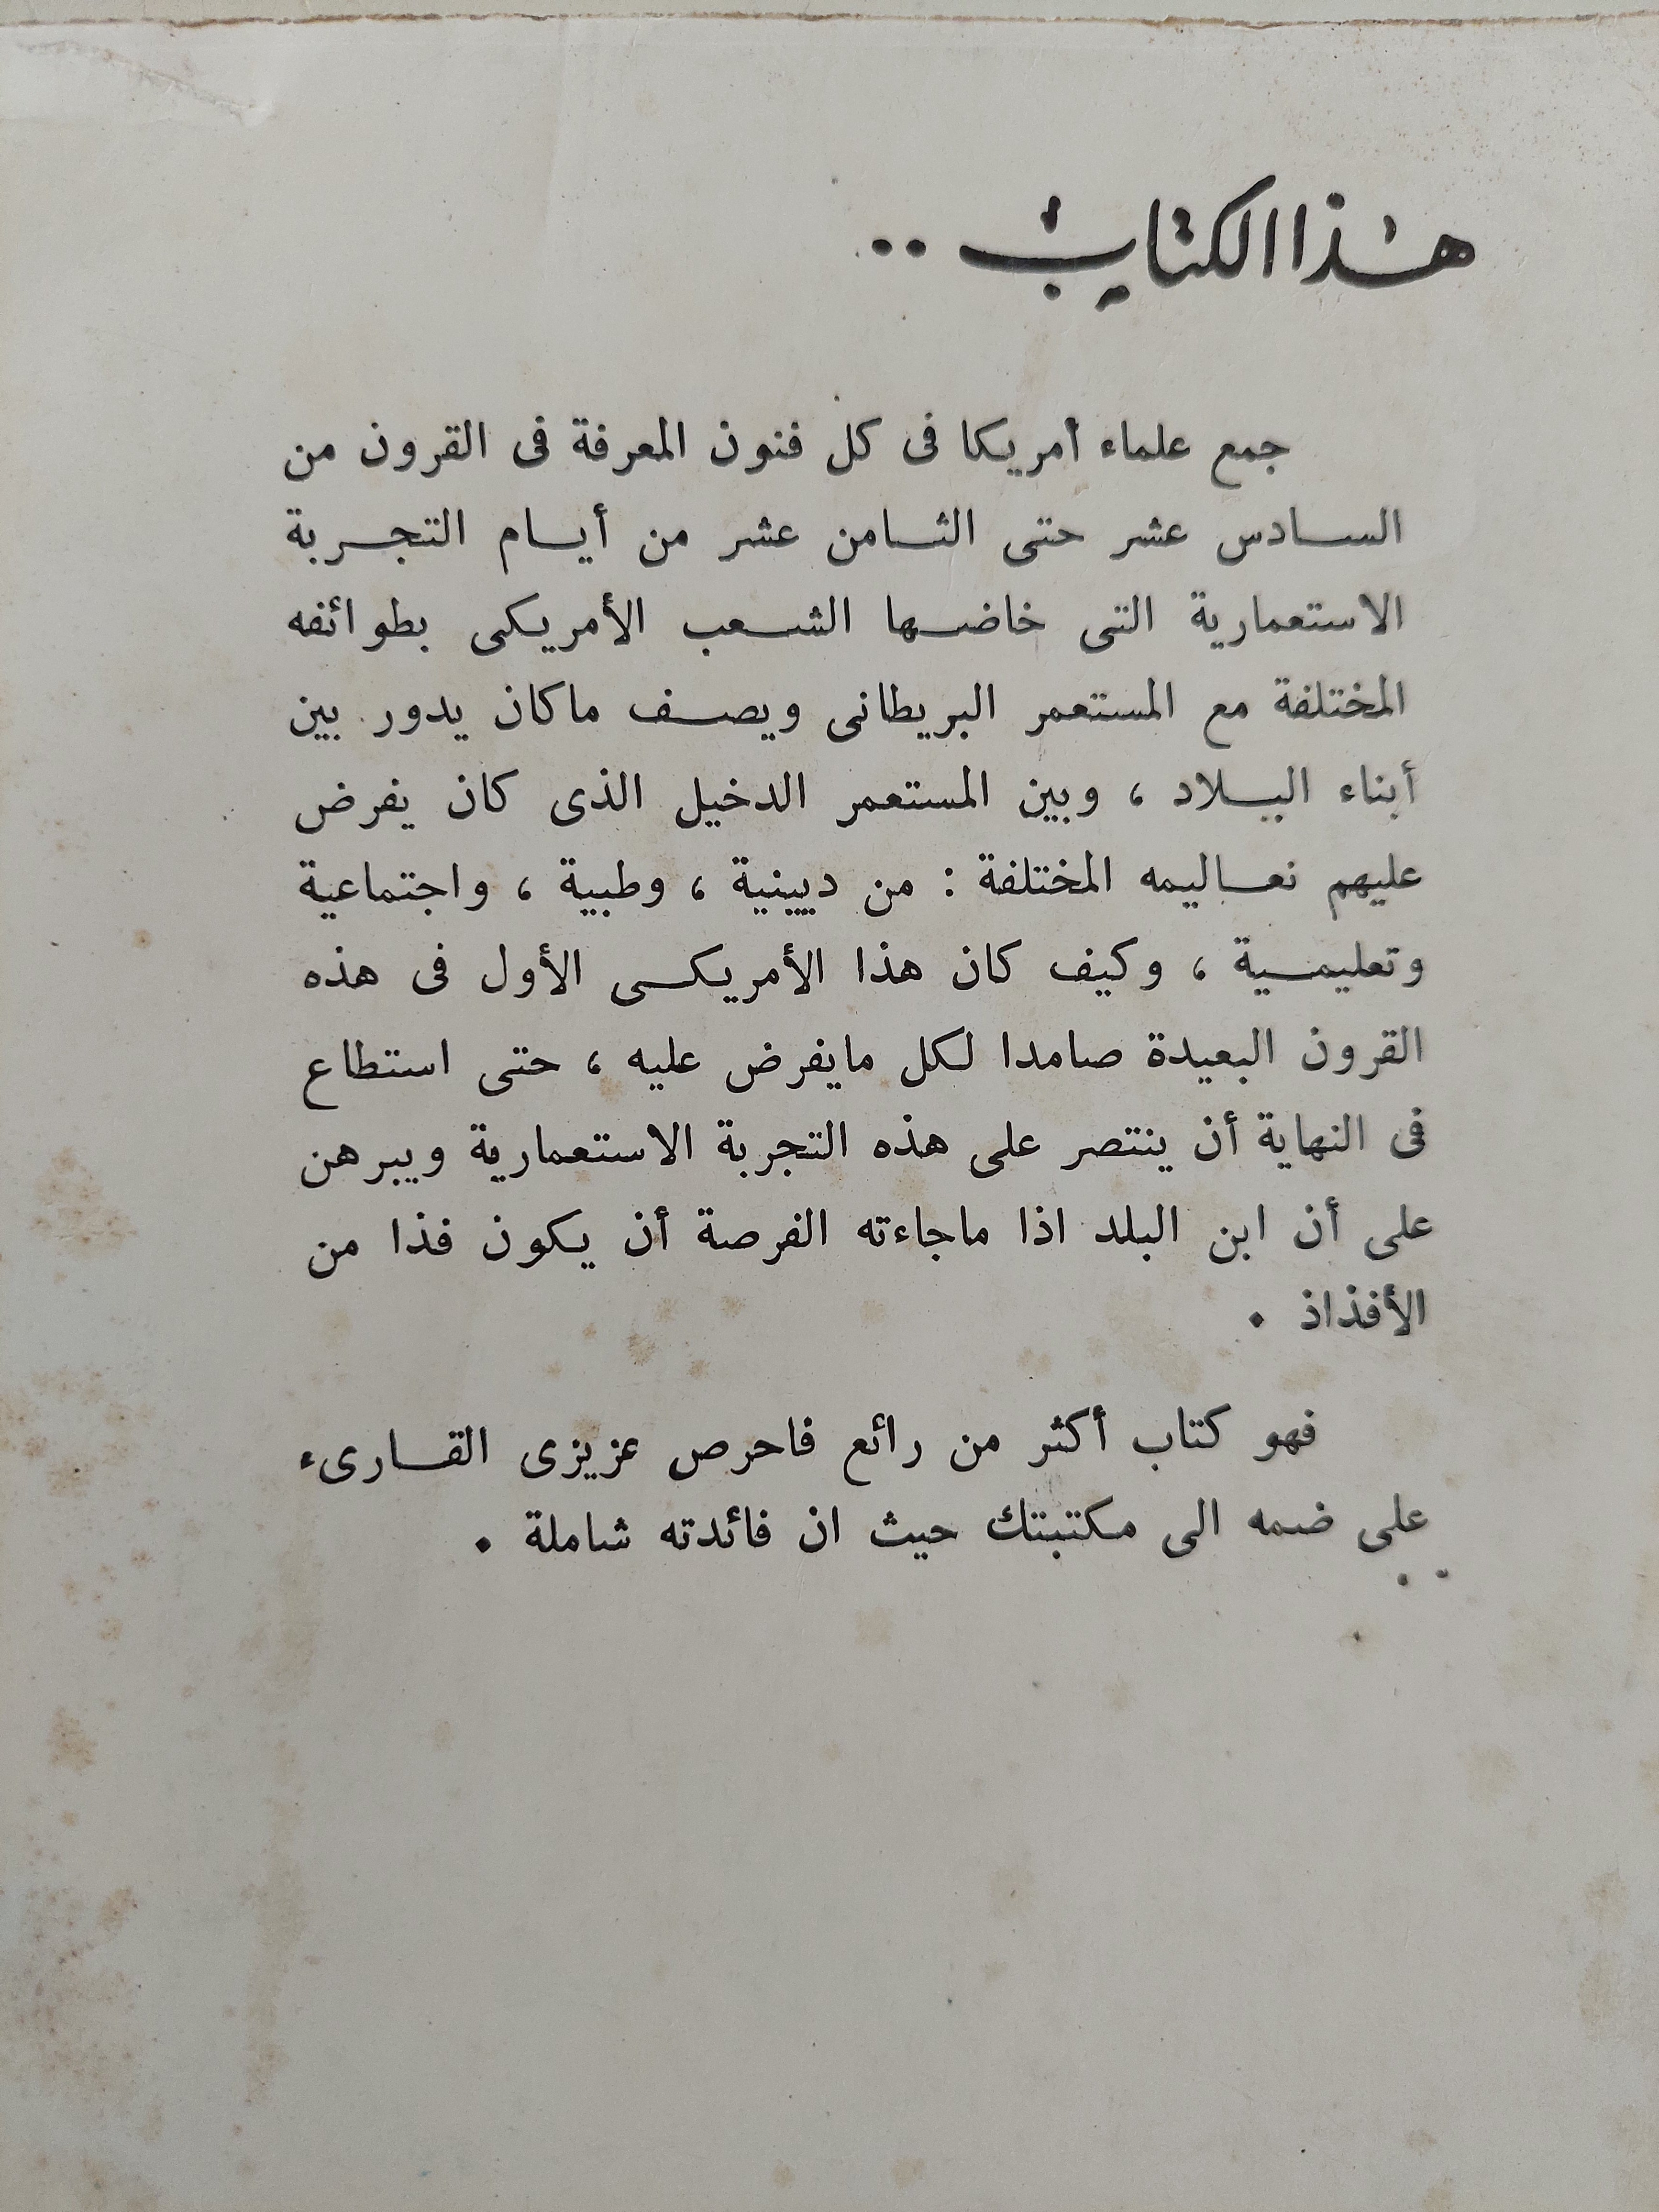 هذا الكتاب ..
جمع علماء أمريكا فى كل فنون المعرفة فى القرون من
السادس عشر حتى الثامن عشر من أيام التجربة
الاستعمارية التى خاضها الشعب الأمريكى بطوائفه
المختلفة مع المستعمر البريطانى ويصف ماكان يدور بين
أبناء البلاد ، وبين المستعمر الدخيل الذى كان يفرض
عليهم تعاليمه المختلفة : من ديينية ، وطبية ، واجتماعية
وتعليمية ، وكيف كان هذا الأمريكى الأول فى هذه
القرون البعيدة صامدا لكل مايفرض عليه ، حتى استطاع
فى النهاية أن ينتصر على هذه التجربة الاستعمارية ويبرهن
على أن ابن البلد اذا ماجاءته الفرصة أن يكون فذا من
الأفذاذ .
فهو كتاب أكثر من رائع فاحرص عزيزى القارىء
على ضمه الى مكتبتك حيث ان فائدته شاملة .